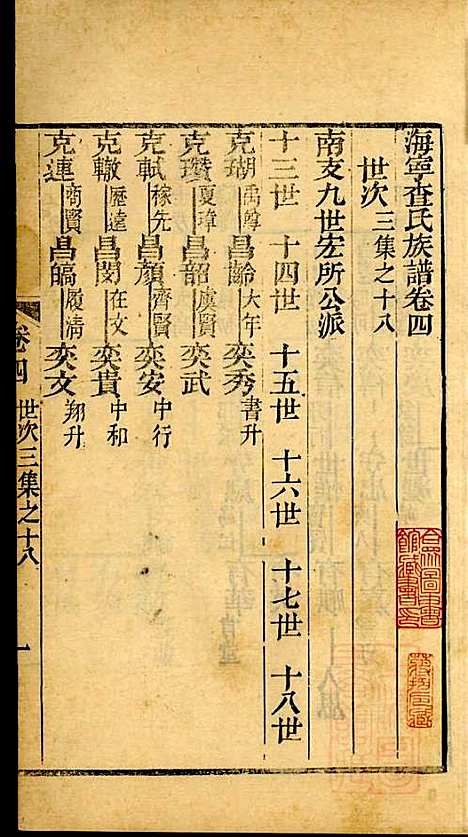 海寧查氏族譜卷四
世次三集之十八
南支九世宏所公派
十三世 十四世 十五世 十六世 十七世 十八世
克瑚 禹尊 昌齡 大年 奕秀 書升
克瓚 夏瑋 昌韶 虞賢 奕武
克軾 稼先 昌顏 齊賢 奕安 中行
克轍 歷達 昌閔 在文 奕貴 中和
克連 商賢 昌皜 履清 奕文 翔升
卷四 世次三集之十八 一